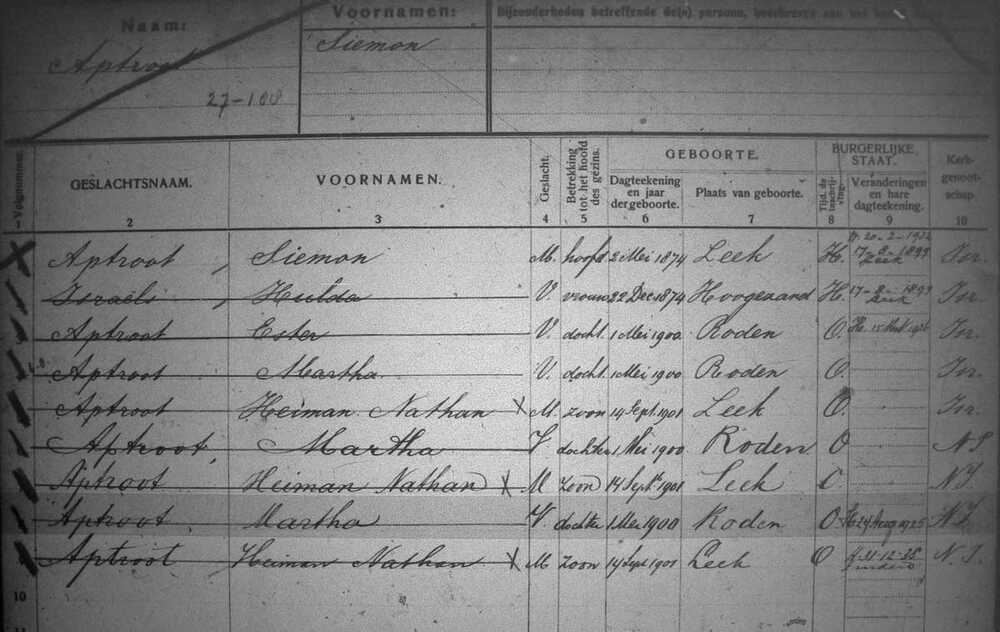 Naam: Voornamen: Bijzonderheden betreffende de(n) persoon,
Aptroot Siemon
27-108
Volgnummer. GESLACHTSNAAM. VOORNAMEN. Geslacht. Betrekking tot het hoofd des gezins. GEBOORTE. Dagteekening en jaar der geboorte. Plaats van geboorte. BURGERLIJKE STAAT. Tijd. de inschrijving. Veranderingen en hare dagteekening. Kerkgenootschap.
1 2 3 4 5 6 7 8 9 10
Aptroot, Siemon M. hoofd 2 Mei 1874 Leek H. 17-8-1899 Leek Isr.
Israëls, Hulda V. vrouw 22 Dec 1874 Hoogezand H. 17-8-1899 Leek Isr.
Aptroot Ester V. docht. 1 Mei 1900 Roden O. Isr.
Aptroot Martha V. docht. 1 Mei 1900 Roden O. Isr.
Aptroot Heiman Nathan X M. zoon 14 Sept. 1901 Leek O. Isr.
Aptroot, Martha V dochter 1 Mei 1900 Roden O N.I.
Aptroot Heiman Nathan X M zoon 14 Sept 1901 Leek O N.I.
Aptroot. Martha V dochter 1 Mei 1900 Roden O H 24 Aug 1925 N.I.
Aptroot Heiman Nathan X M zoon 14 Sept 1901 Leek O N.I.
10